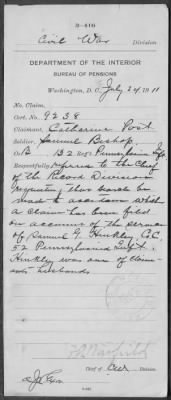 3-416
Civil War Division
DEPARTMENT OF THE INTERIOR
BUREAU OF PENSIONS
Washington, D.C., July 24 1911
No. Claim,
Cert. No. 9238
Claimant, Catharine Post
Soldier, Samuel Bishop,
Co. B 52 Reg't Pennsylvania Inf.
Respectfully referred to the Chief
of the Record Division
requesting that search be
made to ascertain which
a claim has been filed
on account of the service
of Samuel G. Hinkley Co C,
52 Pennsylvania
Hinkley was one of claim-
ants husbands
Chief of Division